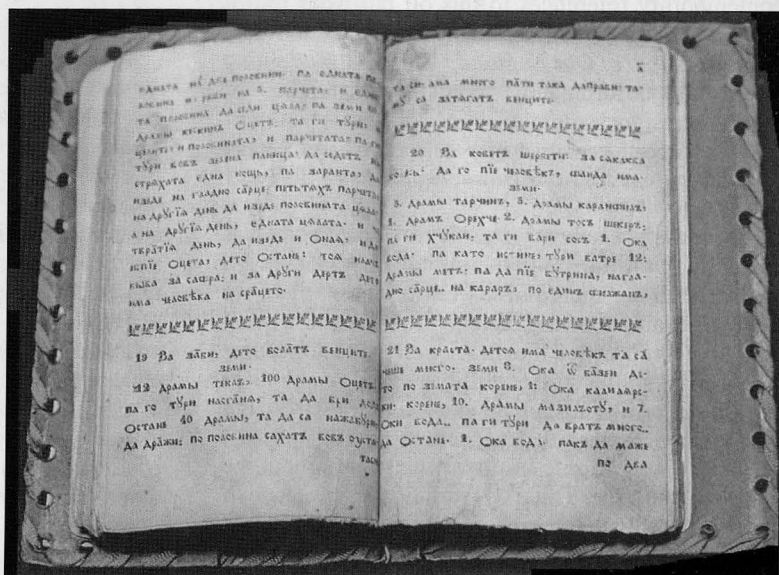 едната на два половини· па едната по
ловина на 3. парчета: и една
та половина да сади цѧла: па земи
драмы оцетъ: та ги тури,
цѧлата, и половината, и парчетата: па ги
тури вовъ зелена паница: да седѧтъ на
стрѧхата една нощь, па заранта, да
изѧде на гладно сѧрце: петьтѧхъ парчета,
на другїѧ день да изѧде половината
а на другїѧ день, едната цѧлата· и
твратїѧ день, да изѧде и онаѧ, и да
испїе оцета: дето остане: тоѧ
быва за и за други дертъ дето
има человѣка на срацето·
19 За зѧби: дето болѧтъ венците
земи·
12 драмы 100 драмы оцетъ:
па го тури на да ври до
остане 40 драмы, та да са
да дражи: по половина сахатъ вовъ уста
та
та си· ама много пѧти така даправи: та·
мꙋ са затѧгатъ венците·
20 За шербети: за
да го пїе человѣкъ, има·
земи·
3. драмы тарчинъ, 3. драмы каранфилъ,
1. драмъ 2. драмы тосъ шекеръ:
па ги хчукаи: та ги вари совъ 1. ока
вода· па като истине, тури ватре 12:
драмы метъ: па да пїе бутрина, на гла·
дно сѧрце.. на караръ, по единъ филжанъ,
21 За краста· детоѧ има человѣкъ та сѧ
чеше много· земи 3. ока ѿ бѧзеи де·
то по земѧта корень, 1: ока
ки· корень, 10. драмы и 7.
оки вода.. па ги тури да вратъ много..
да остане· 1. ока вода· пакъ да маже
по два